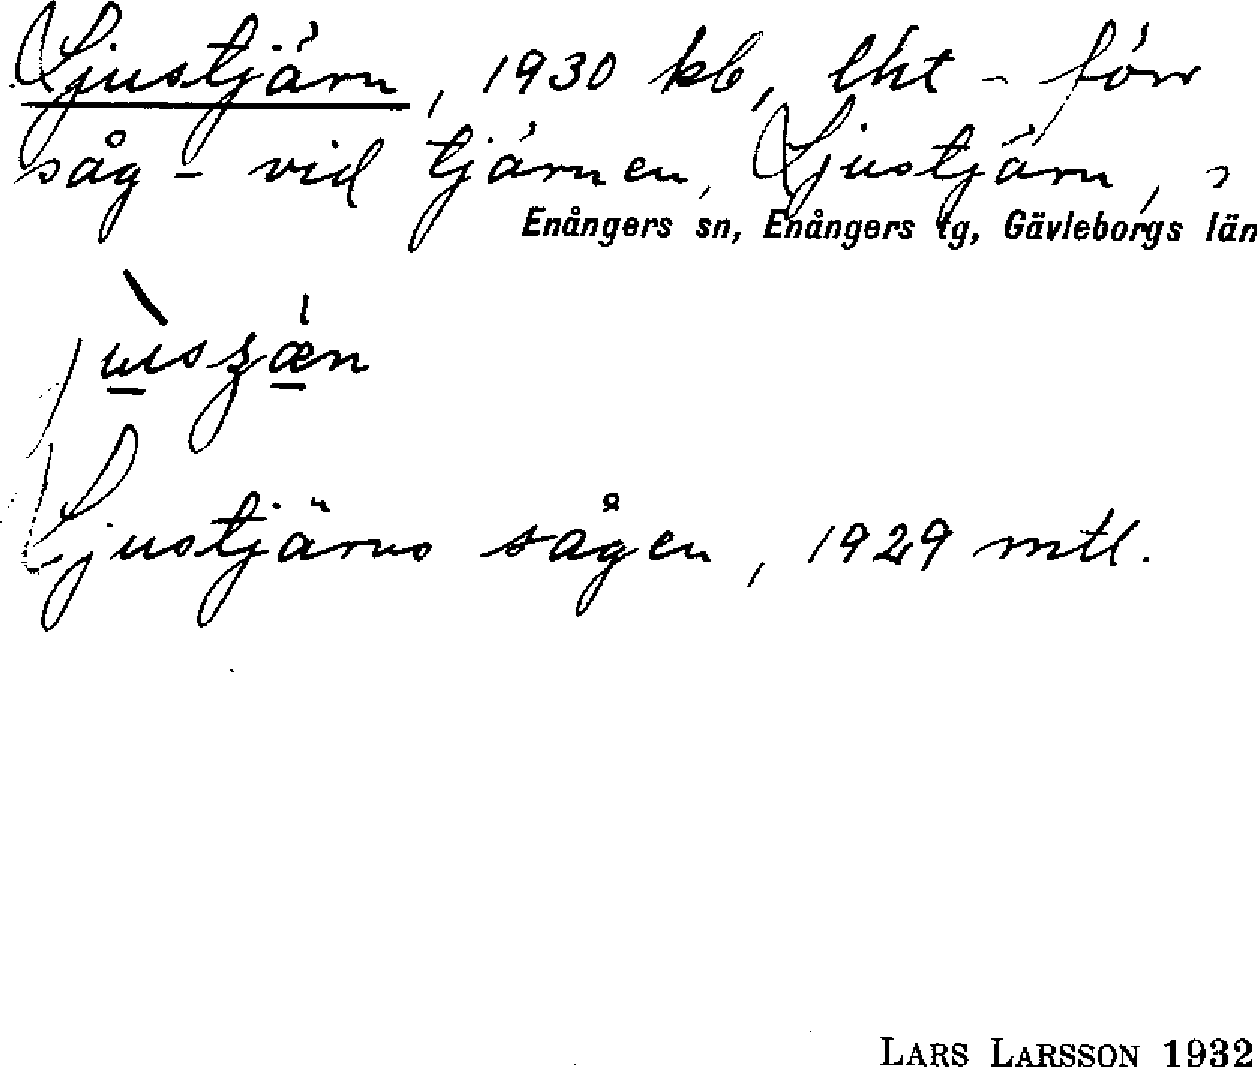 Ljustjärn, 1930 kb, lht - förr
såg - vid tjärnen, Ljustjärn, i
Enångers sn, Enångers tg, Gävleborgs län
Ljustjärns sågen, 1929 mtl.
LARS LARSSON 1932